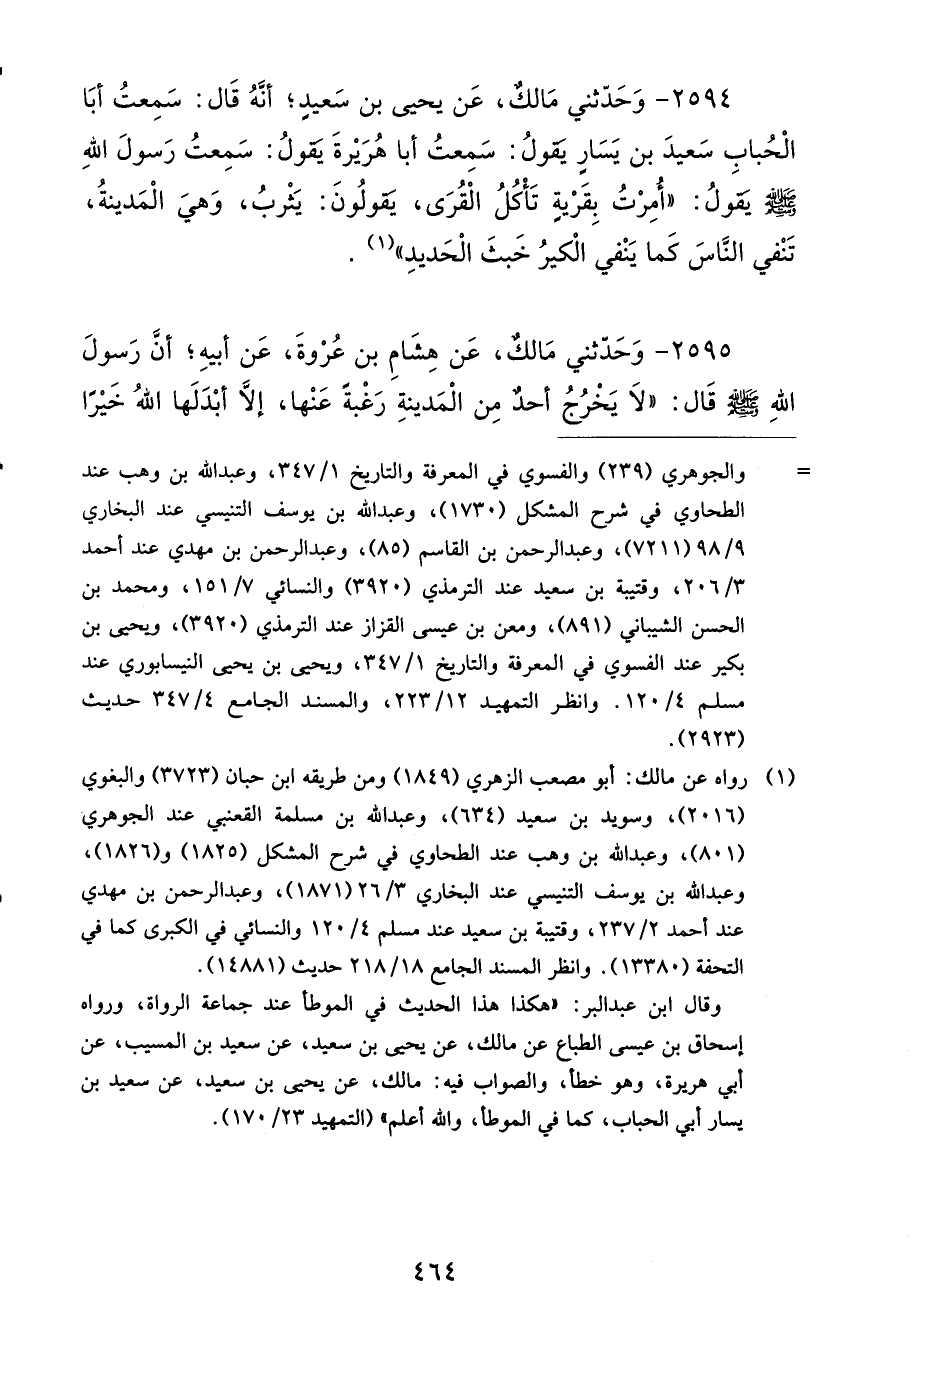 ٢٥٩٤- وَحَدّثني مَالكٌ، عَن يحيى بن سَعيدٍ؛ أنَّهُ قَال: سَمِعتُ أبَا
الْحُبابِ سَعيدَ بن يَسَارٍ يَقولُ: سَمِعتُ أبا هُرَيْرةَ يَقولُ: سَمِعتُ رَسولَ اللهِ
ﷺ يَقولُ: «أُمِرْتُ بِقَرْيةٍ تَأْكُلُ الْقُرَى، يَقولُونَ: يَثْربُ، وَهيَ الْمَدينةُ،
تَنْفي النَّاسَ كَما يَنْفي الْكيرُ خَبثَ الْحَديدِ»(١) .
٢٥٩٥- وَحَدّثني مَالكٌ، عَن هِشَامِ بن عُرْوةَ، عَن أبيهِ؛ أنَّ رَسولَ
اللهِ ﷺ قَال: «لاَ يَخْرُجُ أحدٌ مِن الْمَدينةِ رَغْبةً عَنْها، إلاَّ أبْدَلَها اللهُ خَيْرًا
= والجوهري (٢٣٩) والفسوي في المعرفة والتاريخ ٣٤٧/١، وعبدالله بن وهب عند
الطحاوي في شرح المشكل (١٧٣٠)، وعبدالله بن يوسف التنيسي عند البخاري
٩٨/٩ (٧٢١١)، وعبدالرحمن بن القاسم (٨٥)، وعبدالرحمن بن مهدي عند أحمد
٢٠٦/٣، وقتيبة بن سعيد عند الترمذي (٣٩٢٠) والنسائي ١٥١/٧، ومحمد بن
الحسن الشيباني (٨٩١)، ومعن بن عيسى القزاز عند الترمذي (٣٩٢٠)، ويحيى بن
بكير عند الفسوي في المعرفة والتاريخ ٣٤٧/١، ويحيى بن يحيى النيسابوري عند
مسلم ١٢٠/٤. وانظر التمهيد ٢٢٣/١٢، والمسند الجامع ٣٤٧/٤ حديث
(٢٩٢٣).
(١) رواه عن مالك: أبو مصعب الزهري (١٨٤٩) ومن طريقه ابن حبان (٣٧٢٣) والبغوي
(٢٠١٦)، وسويد بن سعيد (٦٣٤)، وعبدالله بن مسلمة القعنبي عند الجوهري
(٨٠١)، وعبدالله بن وهب عند الطحاوي في شرح المشكل (١٨٢٥) و(١٨٢٦)،
وعبدالله بن يوسف التنيسي عند البخاري ٢٦/٣ (١٨٧١)، وعبدالرحمن بن مهدي
عند أحمد ٢٣٧/٢، وقتيبة بن سعيد عند مسلم ١٢٠/٤ والنسائي في الكبرى كما في
التحفة (١٣٣٨٠). وانظر المسند الجامع ٢١٨/١٨ حديث (١٤٨٨١).
وقال ابن عبدالبر: «هكذا هذا الحديث في الموطأ عند جماعة الرواة، ورواه
إسحاق بن عيسى الطباع عن مالك، عن يحيى بن سعيد، عن سعيد بن المسيب، عن
أبي هريرة، وهو خطأ، والصواب فيه: مالك، عن يحيى بن سعيد، عن سعيد بن
يسار أبي الحباب، كما في الموطأ، والله أعلم» (التمهيد ١٧٠/٢٣).
٤٦٤